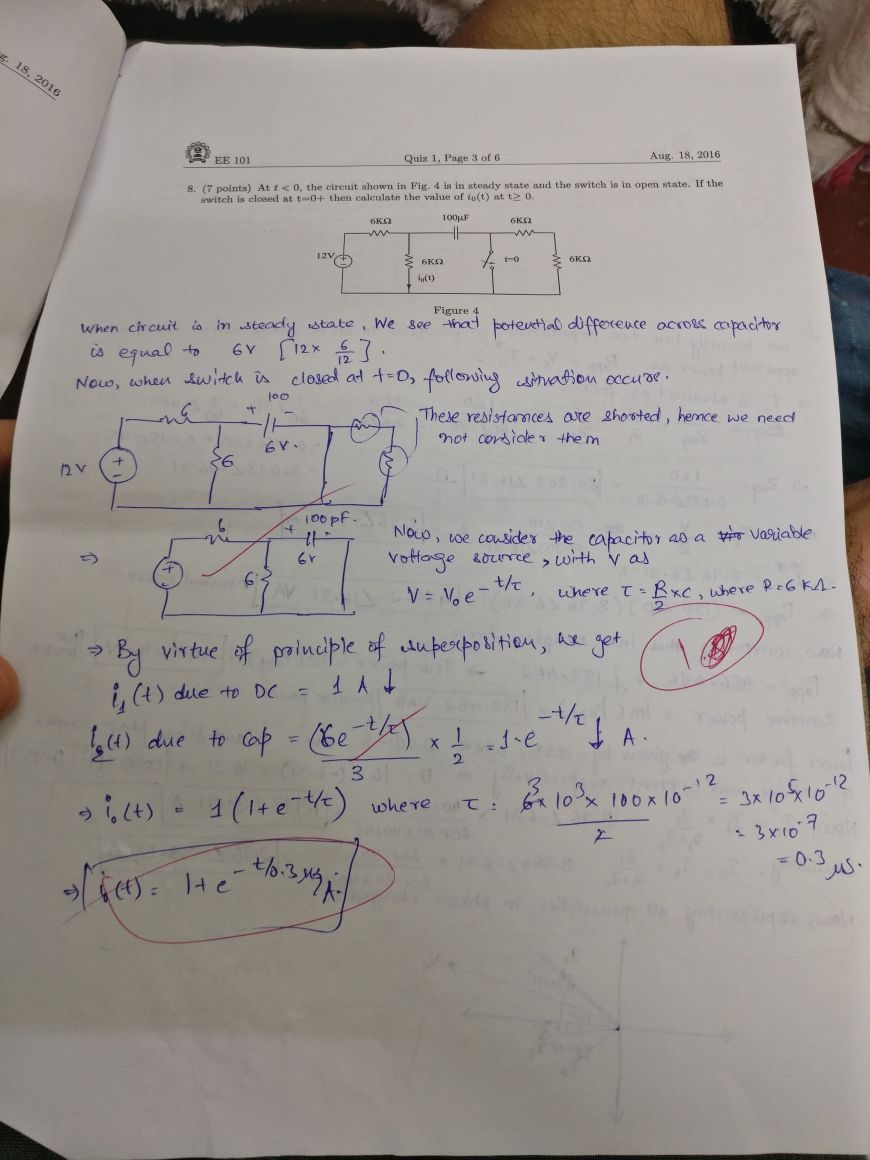 g. 18, 2016
EE 101
Quiz 1, Page 3 of 6
Aug. 18, 2016
8. (7 points) At t < 0, the circuit shown in Fig. 4 is in steady state and the switch is in open state. If the
switch is closed at t=0+ then calculate the value of i₀(t) at t≥ 0.
6KΩ
100μF
6KΩ
12V
6KΩ
t=0
6KΩ
i₀(t)
Figure 4
When circuit is in steady state, We see that potential difference across capacitor
is equal to 6V [12 x 6/12].
Now, when switch is closed at t=0, following situation occurs.
6
+ 100 -
6V.
12V
+
-
6
These resistances are shorted, hence we need
not consider them
⇒
6
+ 100pF. -
6V
+
-
6
Now, we consider the capacitor as a variable
voltage source, with V as
V = V₀e^-t/τ, where τ = R/2 x C, where R = 6 kΩ.
⇒ By virtue of principle of superposition, we get
1
i₁(t) due to DC = 1 A ↓
i₂(t) due to cap = (6e^-t/τ)/3 x 1/2 = 1·e^-t/τ ↓ A.
⇒ i₀(t) = 1(1+e^-t/τ) where τ = 6 3 x 10³ x 100 x 10^-12 / 2 = 3x10⁵x10^-12
= 3x10^-7
= 0.3 μs.
⇒ i₀(t) = 1+e^-t/0.3μs A.